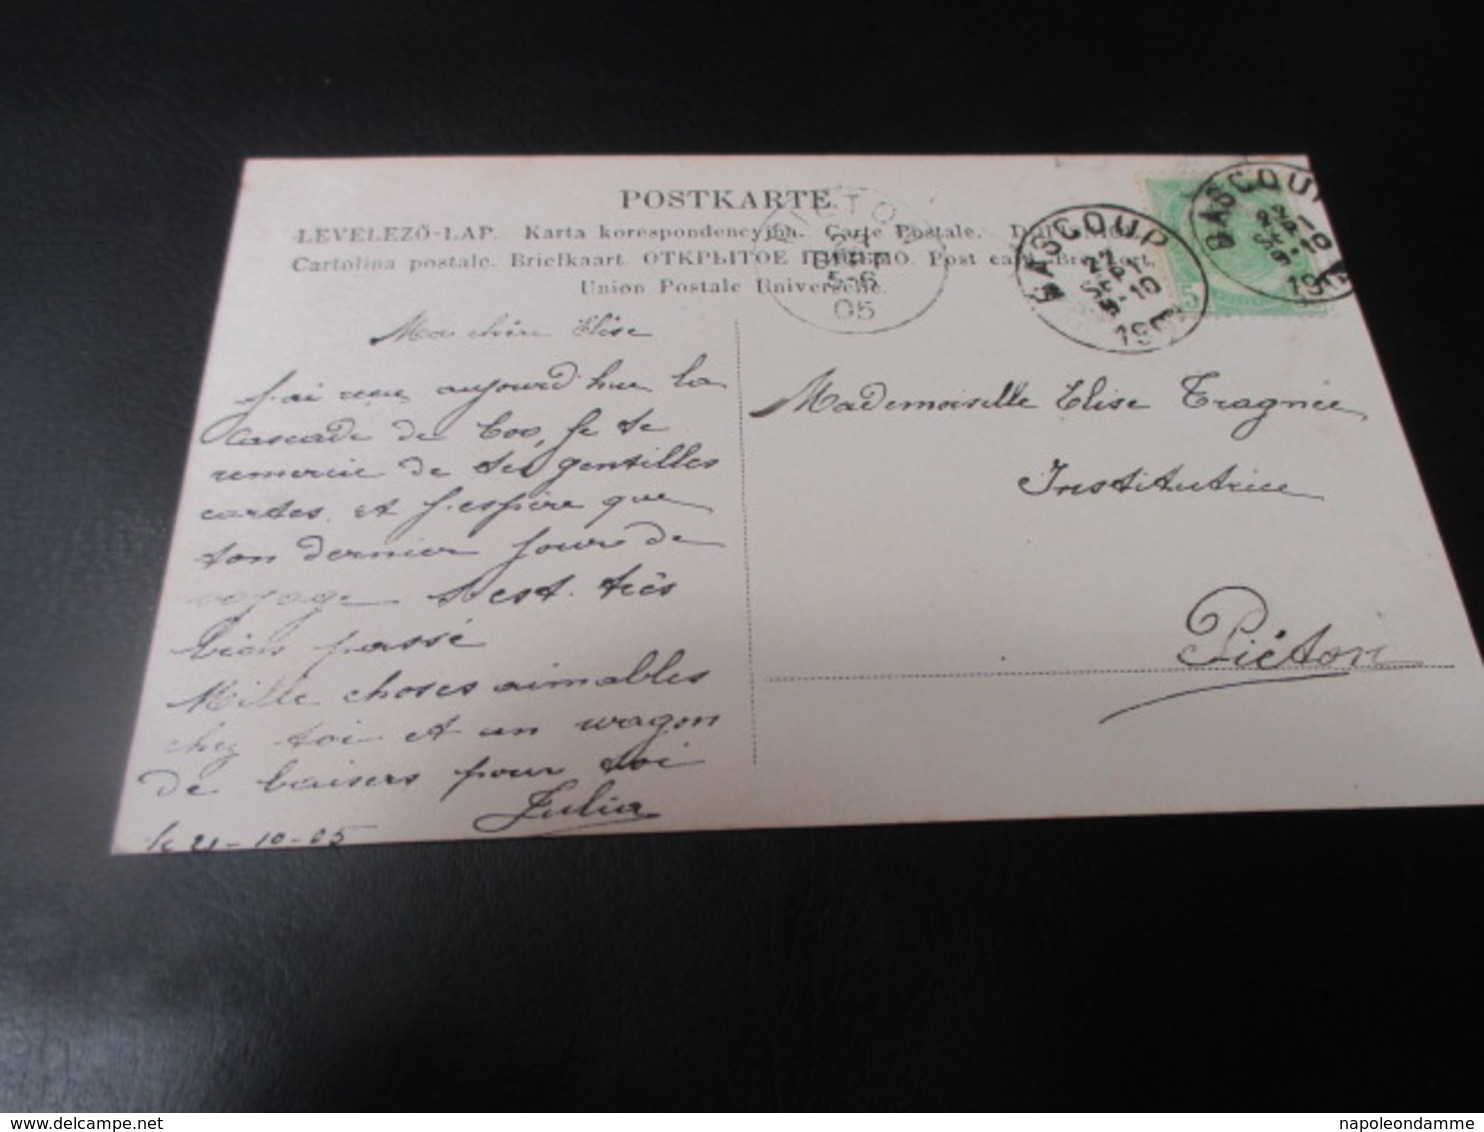 POSTKARTE.
LEVELEZŐ-LAP. Karta korespondencyjna. Carte Postale.
Cartolina postale. Briefkaart. ОТКРЫТОЕ ПИСЬМО. Post card. Brevkort.
Union Postale Universelle.
PIETON
21
OCT
5-6
05
BASCOUP
BASCOUP
5
Ma chère Elise
J'ai reçu aujourd'hui la
cascade de Coo, je te
remercie de tes gentilles
cartes et j'espère que
ton dernier jour de
voyage s'est très
bien passé
Mille choses aimables
chez toi et un wagon
de baisers pour toi
Julia
le 21-10-05
Mademoiselle Elise Tragnée
Institutrice
Piéton
napoleondamme